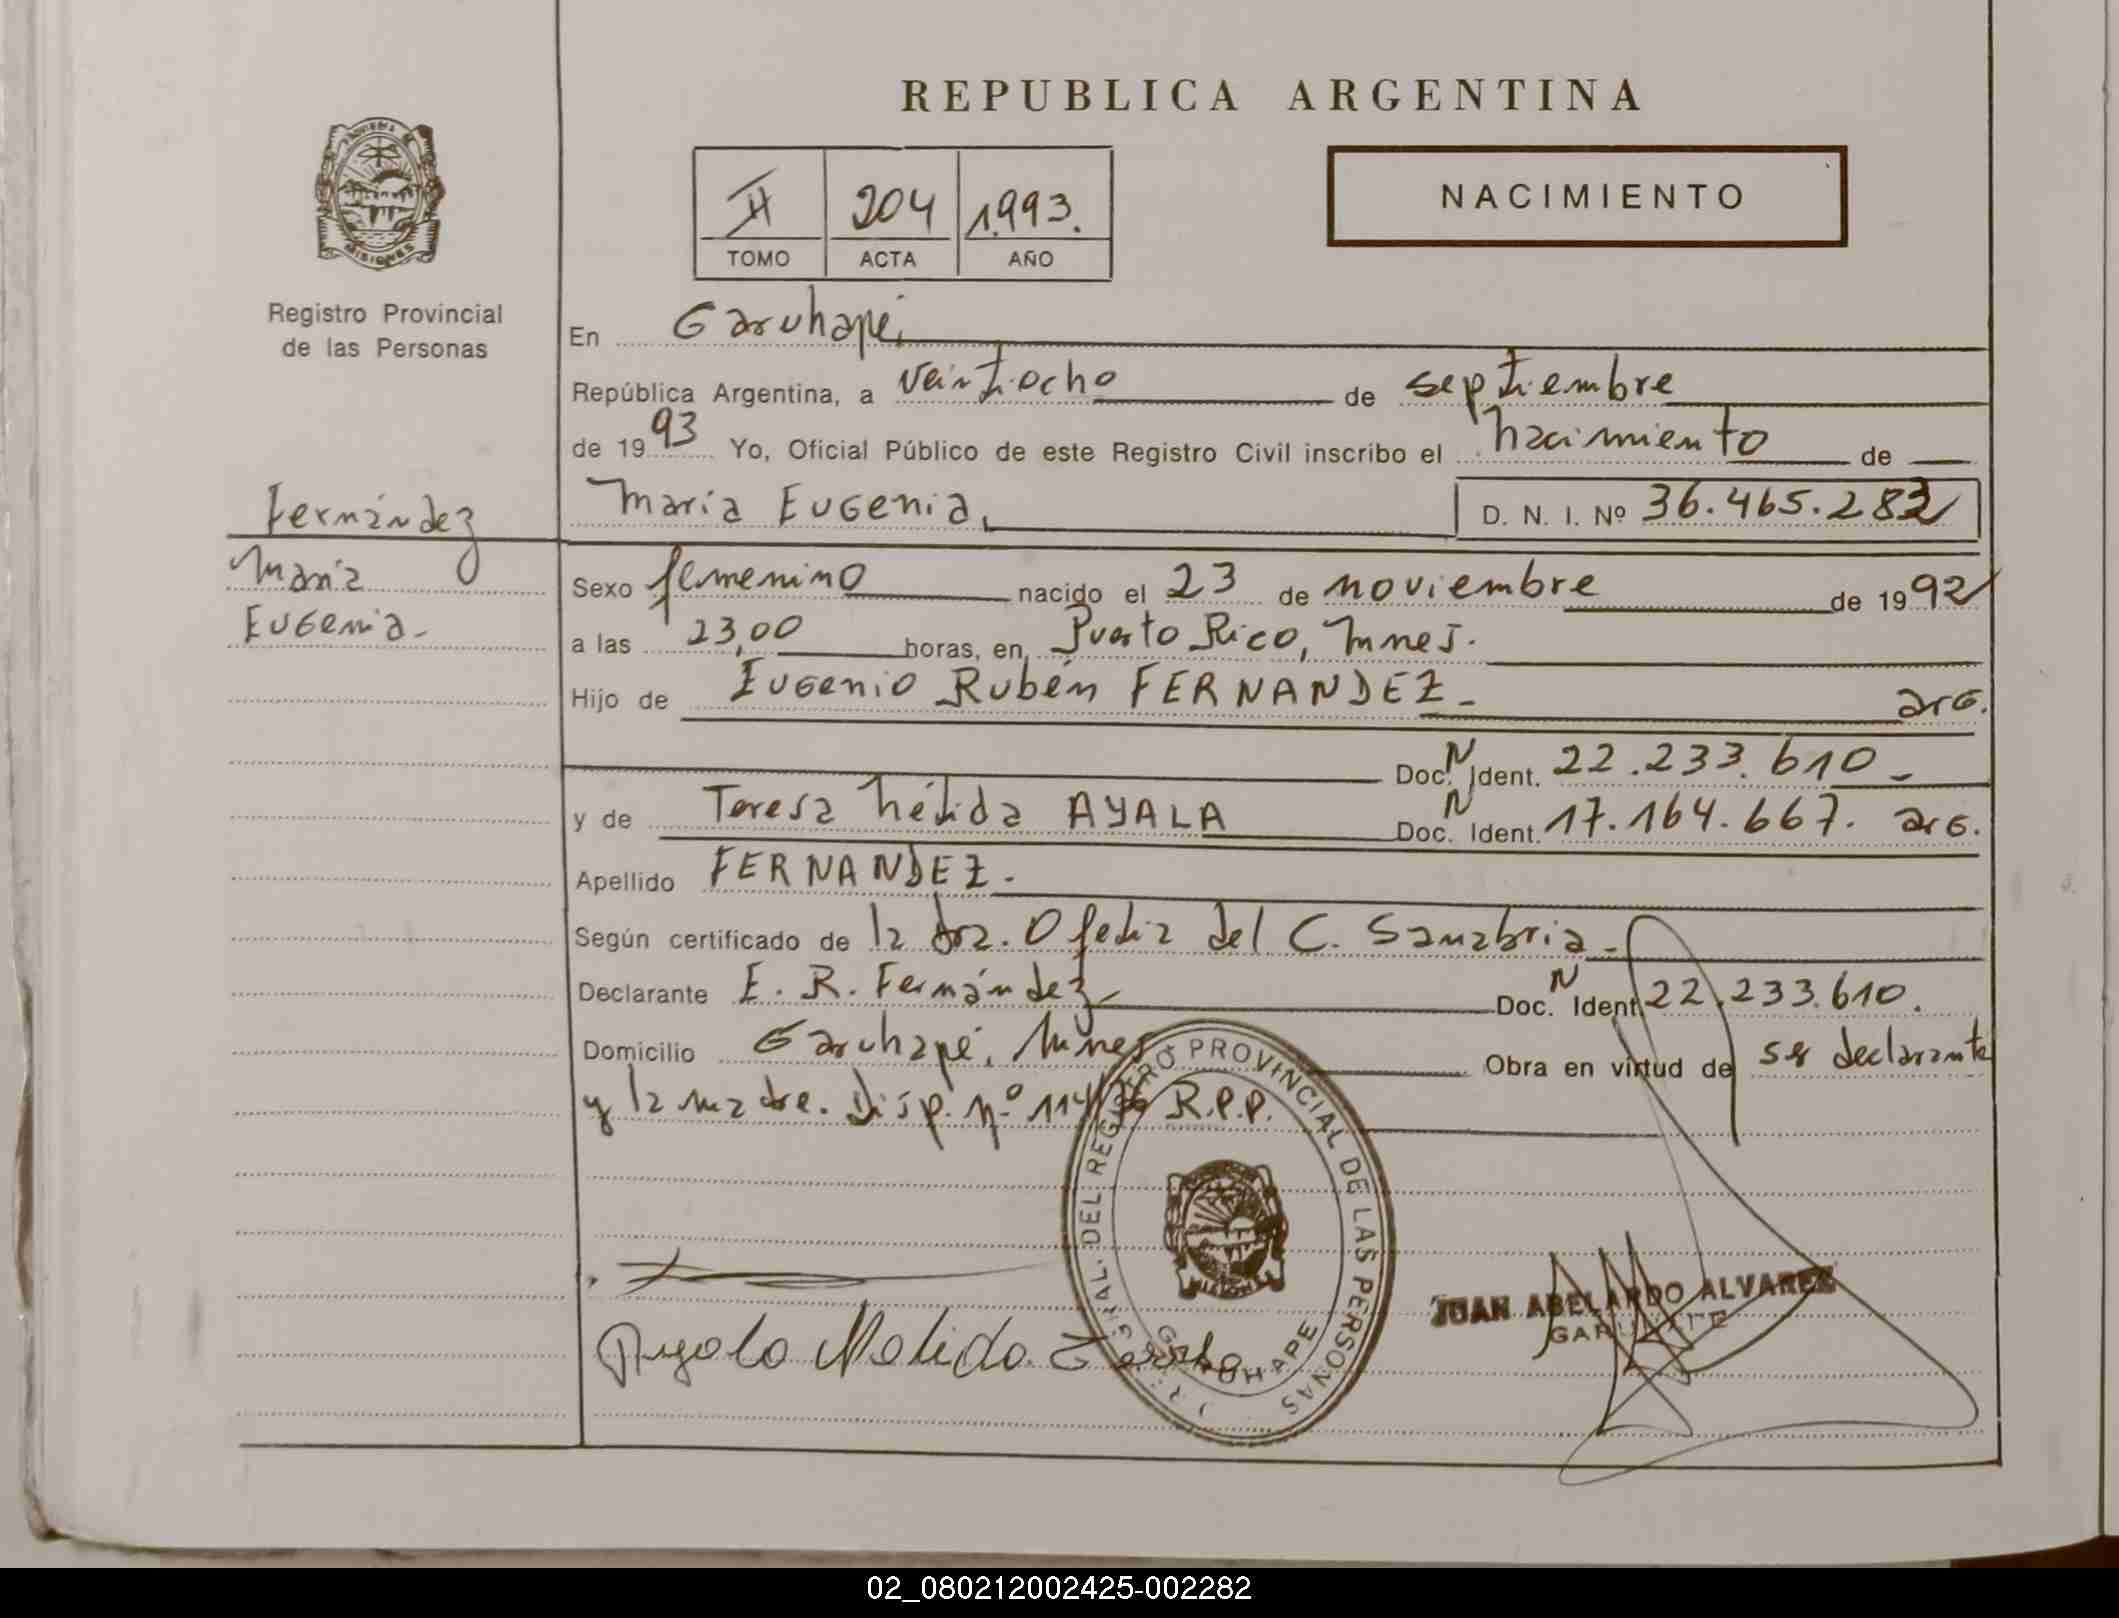 REPUBLICA ARGENTINA
II 204 1.993.
TOMO ACTA AÑO
NACIMIENTO
MISIONES
Registro Provincial
de las Personas
En Garuhapé,
República Argentina, a veintiocho de septiembre
de 1993 Yo, Oficial Público de este Registro Civil inscribo el nacimiento de
María Eugenia, D. N. I. Nº 36.465.282
Fernández
María
Eugenia.-
Sexo femenino nacido el 23 de noviembre de 1992
a las 23,00 horas, en Puerto Rico, Mnes.
Hijo de Eugenio Rubén FERNANDEZ.- arg.
Doc. N Ident. 22.233.610.-
y de Teresa Nélida AYALA Doc. N Ident. 17.164.667. arg.
Apellido FERNANDEZ.-
Según certificado de la dra. Ofelia del C. Sanabria.-
Declarante E. R. Fernández.- Doc. N Ident. 22.233.610.
Domicilio Garuhapé, Mnes Obra en virtud de ser declarante
y la madre. Disp. nº R.P.P.
GRAL. DEL REGISTRO PROVINCIAL DE LAS PERSONAS
GARUHAPE
JUAN ABELARDO ALVAREZ
GARUHAPE
Ayala Nelida Teresa
02_080212002425-002282